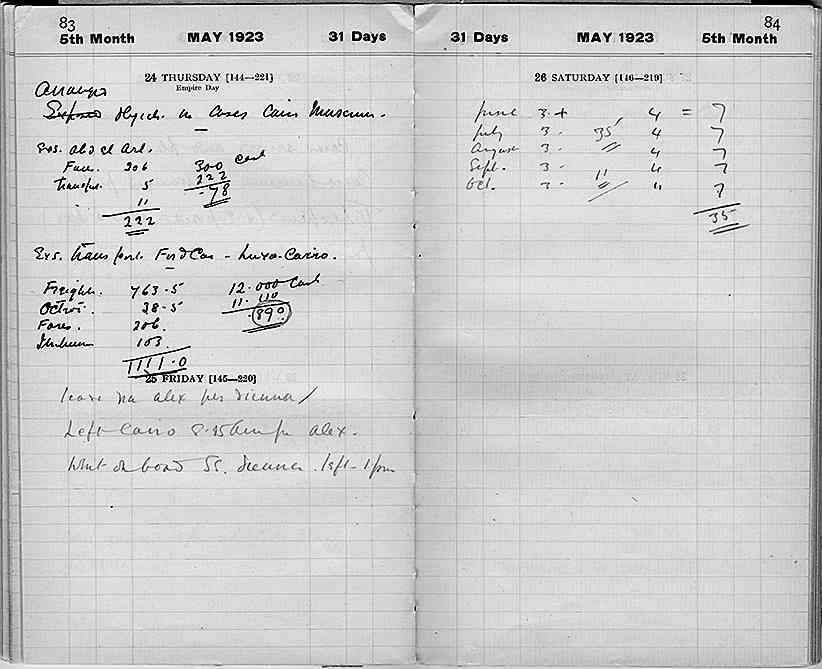 83
5th Month MAY 1923 31 Days
24 THURSDAY [144—221]
Empire Day
Arranged
Exposed Objects in Cases Cairo Museum.
Exs. Abd el Arl.
Fare. 206 300 Cash
Transpt. 5 222
11 -78
222
Exs. Transport Ford Car - Luxor-Cairo.
Freight. 763.5 12.000 Cash
Octroi. 38-5 11.110
Fares. 206. .890
103
1111.0
25 FRIDAY [145—220]
leave via Alex per Vienna
Left Cairo 8.25 am for Alex.
Went on board SS. Vienna. left 1 pm
84
31 Days MAY 1923 5th Month
26 SATURDAY [146—219]
June 3 + 4 = 7
July 3 - 35 4 7
August 3 - 4 7
Sept. 3 - 11 4 7
Oct. 3 - 4 7
35